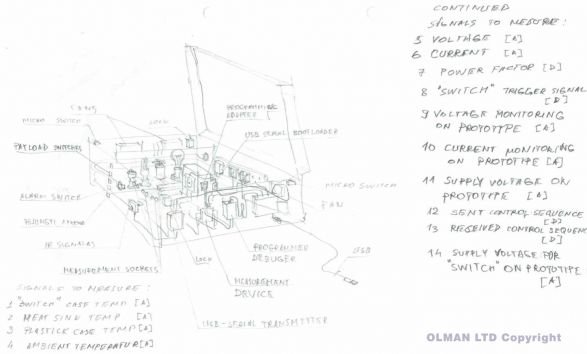 CONTINUED
SIGNALS TO MEASURE:
5 VOLTAGE [A]
6 CURRENT [A]
7 POWER FACTOR [D]
8 "SWITCH" TRIGGER SIGNAL
[D]
9 VOLTAGE MONITORING
ON PROTOTYPE [A]
10 CURRENT MONITORING
ON PROTOTYPE [A]
11 SUPPLY VOLTAGE ON
PROTOTYPE [A]
12 SENT CONTROL SEQUENCE
[D]
13 RECEIVED CONTROL SEQUENC
[D]
14 SUPPLY VOLTAGE FOR
"SWITCH" ON PROTOTYPE
[A]
MICRO SWITCH
LOCK
PROGRAMMING
ADAPTER
USB SERIAL BOOTLOADER
PAYLOAD SWITCHES
MICRO SWITCH
FAN
ALARM SWITCH
IR SIGNAL
MEASUREMENT SOCKETS
LOCK
PROGRAMMER
DEBUGER
USB
MEASUREMENT
DEVICE
USB-SERIAL TRANSMITTER
SIGNALS TO MEASURE:
1 "SWITCH" CASE TEMP [A]
2 HEAT SINK TEMP [A]
3 PLASTICK CASE TEMP [A]
4 AMBIENT TEMPERATUR [A]
OLMAN LTD Copyright